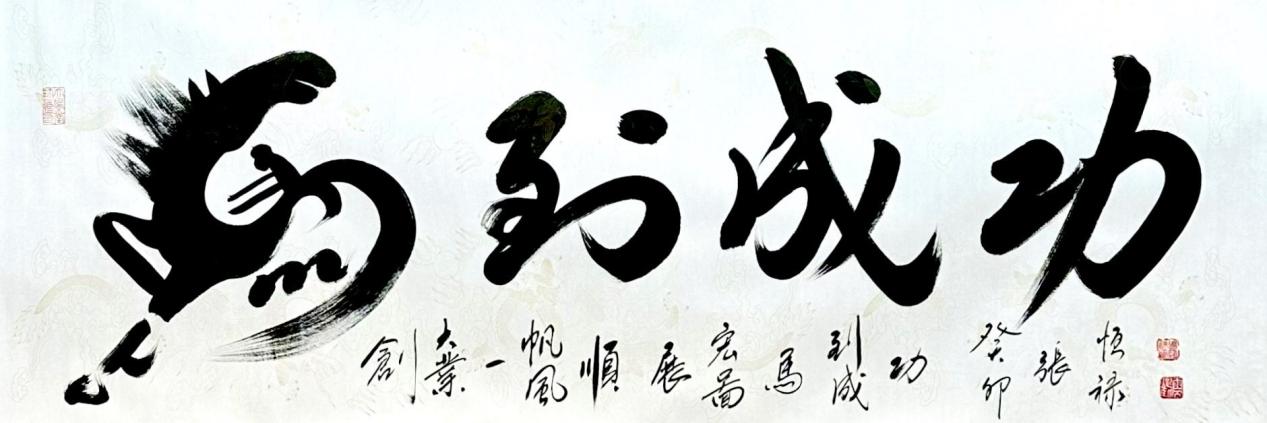 馬到成功
創大業一帆風順展宏圖馬到成功
癸卯張恒祿